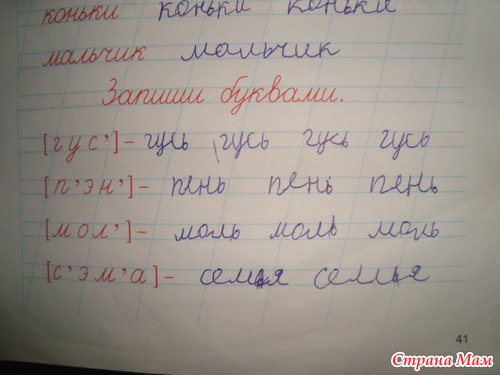 коньки коньки коньки
мальчик мальчик
Запиши буквами.
[гус’]– гусь гусь гусь гусь
[п’эн’]– пень пень пень
[мол’]– моль моль моль
[с’эм’а]– семья семья
41
Страна Мам